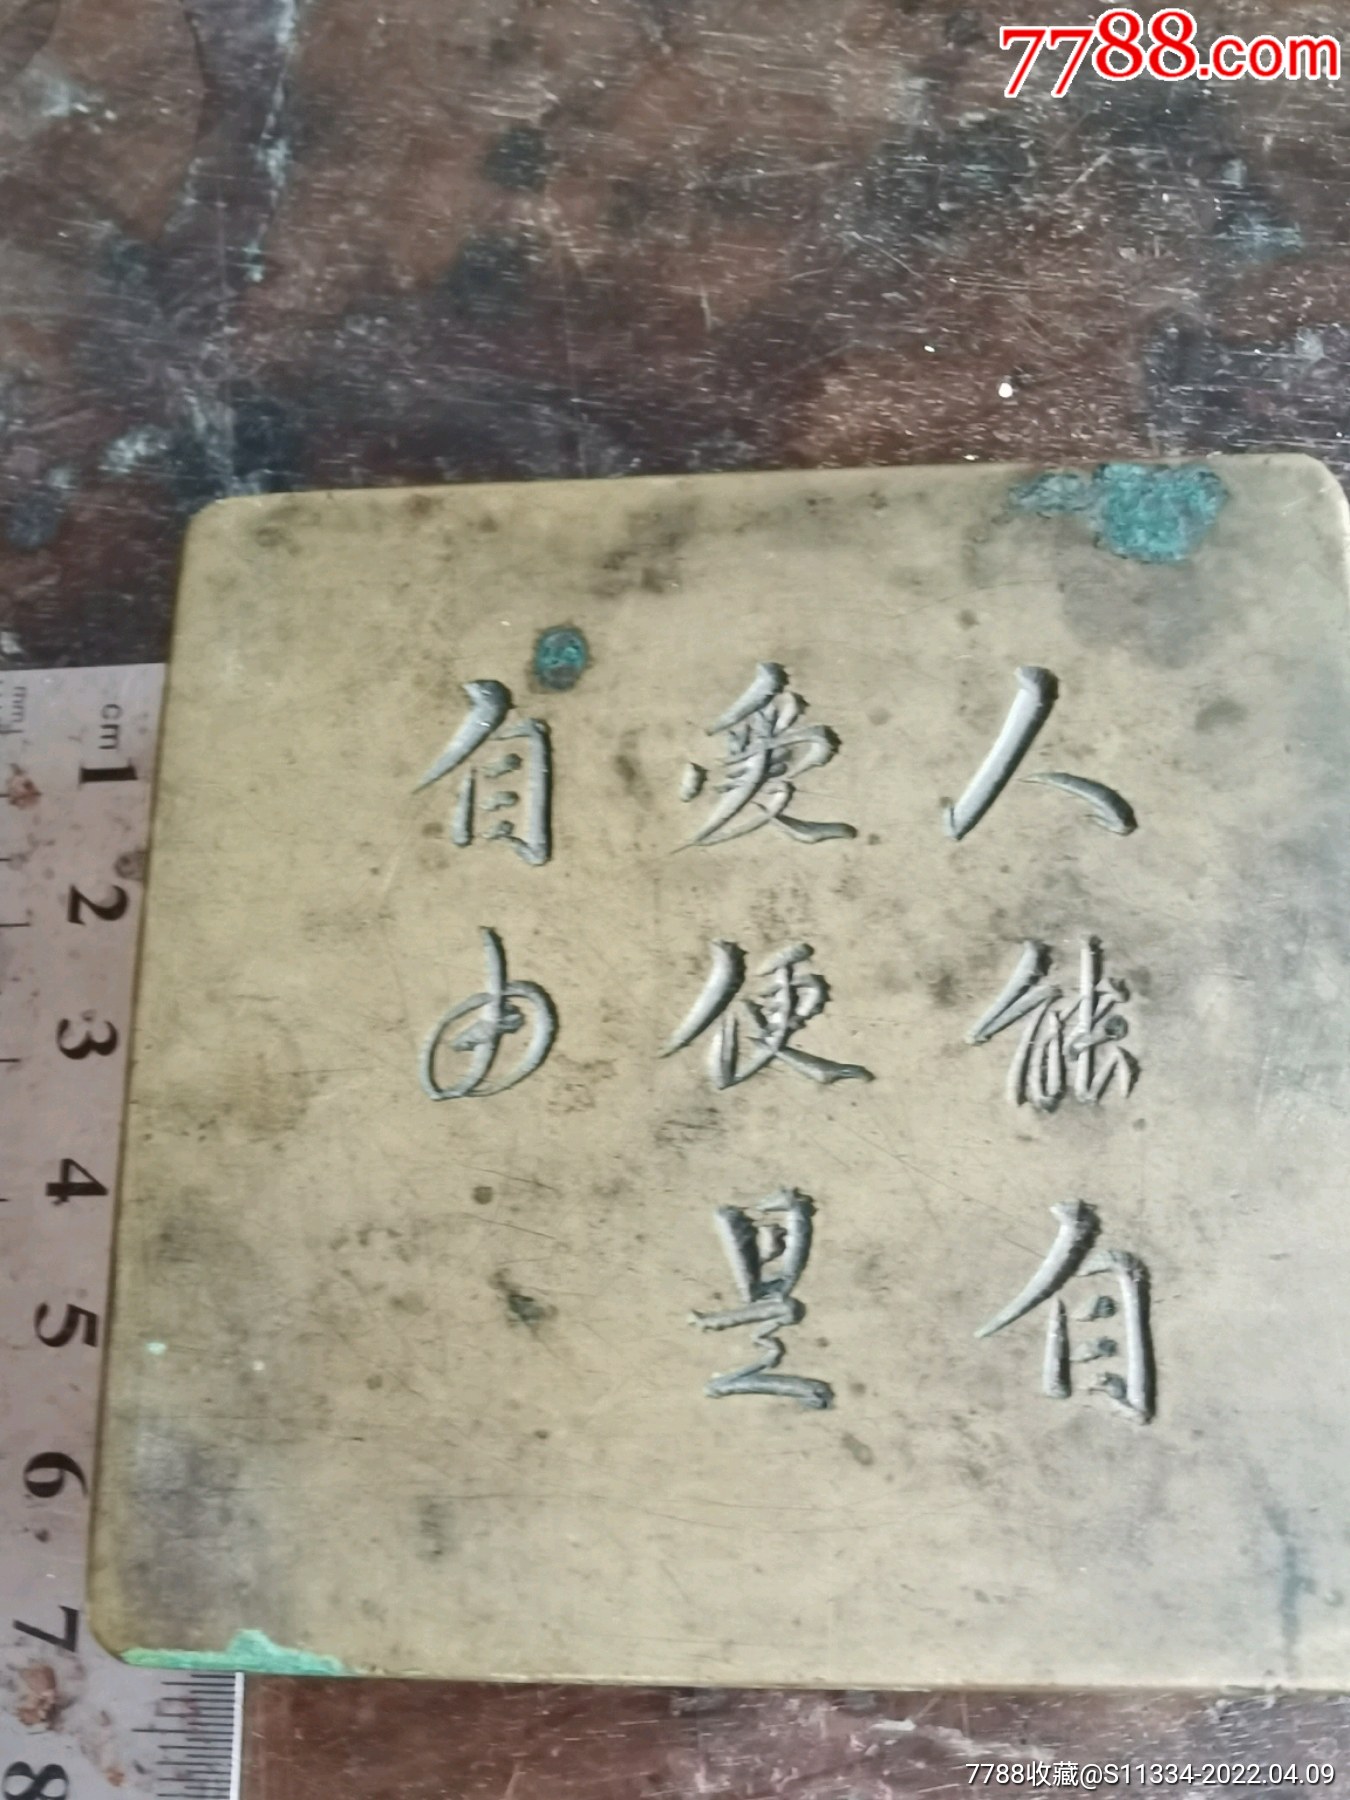 7788.com
人能自
愛便是
自由
mm
cm
1
2
3
4
5
6
7
8
7788收藏@S11334-2022.04.09